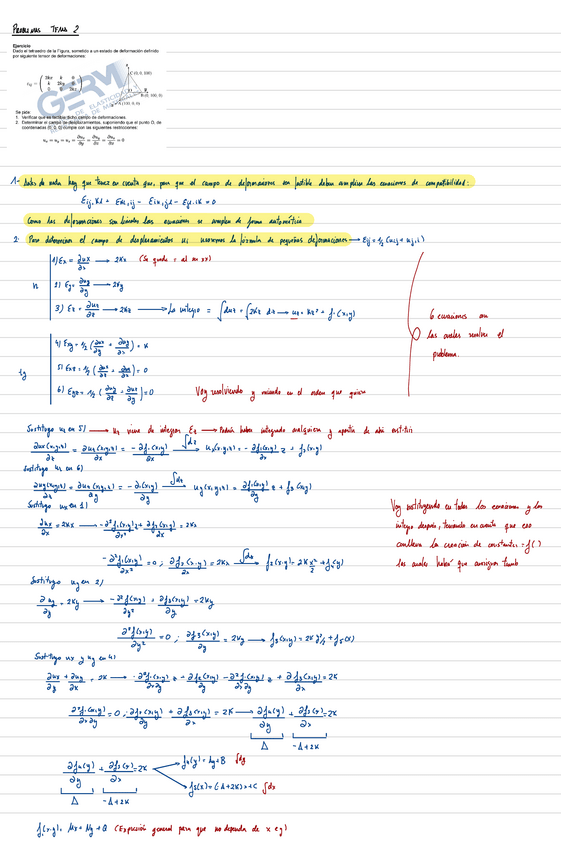 Problemas Tema 2
Ejercicio
Dado el tetraedro de la Figura, sometido a un estado de deformación definido
por siguiente tensor de deformaciones:
C (0, 0, 100)
B (0, 100, 0)
A (100, 0, 0)
GERM
Se pide:
1. Verificar que es factible dicho campo de deformaciones.
2. Determinar el campo de desplazamientos, suponiendo que el punto O, de
coordenadas (0, 0, 0) cumple con las siguientes restricciones:
1- Antes de nada hay que tener en cuenta que, para que el campo de deformaciones sea factible deben cumplirse las ecuaciones de compatibilidad:
Eij,kl + Ekl,ij - Eik,jl - Ejl,ik = 0
Como las deformaciones son lineales las ecuaciones se cumplen de forma automática
2- Para determinar el campo de desplazamientos ui usaremos la fórmula de pequeñas deformaciones → Eij = 1/2 (ui,j + uj,i)
1) Ex = ∂ux/∂x → 2Kx
2) Ey = ∂uy/∂y → 2Ky
3) Ez = ∂uz/∂z → 2Kz → Lo integro = ∫duz = ∫2Kz dz → uz = Kz² + f1(x,y)
6 ecuaciones con
las cuales resolver el
problema.
4) Exy = 1/2 (∂ux/∂y + ∂uy/∂x) = K
5) Exz = 1/2 (∂ux/∂z + ∂uz/∂x) = 0
6) Eyz = 1/2 (∂uy/∂z + ∂uz/∂y) = 0
Voy resolviendo y mirando en el orden que quiera
Sustituyo uz en 5) → uz viene de integrar Ez → Podría haber integrado cualquiera y a partir de ahí sustituir
∂ux(x,y,z)/∂z = -∂f1(x,y)/∂x → ux(x,y,z) = -∂f1(x,y)/∂x z + f2(x,y)
Sustituyo uz en 6)
Sustituyo ux en 1)
∂ux/∂x = 2Kx → -∂²f1(x,y)/∂x² z + ∂f2(x,y)/∂x = 2Kx
Voy sustituyendo en todas las ecuaciones y las
integro después, teniendo en cuenta que eso
conlleva la creación de constantes = f( )
las cuales habrá que averiguar
-∂²f1(x,y)/∂x² = 0 ; ∂f2(x,y)/∂x = 2Kx → f2(x,y) = 2K x²/2 + f4(y)
Sustituyo uy en 2)
∂uy/∂y = 2Ky → -∂²f1(x,y)/∂y² + ∂f3(x,y)/∂y = 2Ky
∂²f1(x,y)/∂y² = 0 ; ∂f3(x,y)/∂y = 2Ky → f3(x,y) = 2K y²/2 + f5(x)
Sustituyo ux y uy en 4)
∂ux/∂y + ∂uy/∂x = 2K → -∂²f1(x,y)/∂x∂y z + ∂f2(x,y)/∂y - ∂²f1(x,y)/∂x∂y z + ∂f3(x,y)/∂x = 2K
∂f4(y)/∂y + ∂f5(x)/∂x = 2K
A
-A+2K
f4(y) = Ay + B ∫dy
f5(x) = (-A+2K)x + C ∫dx
f1(x,y) = Mx + Ny + Q (Expresión general para que no dependa de x e y)